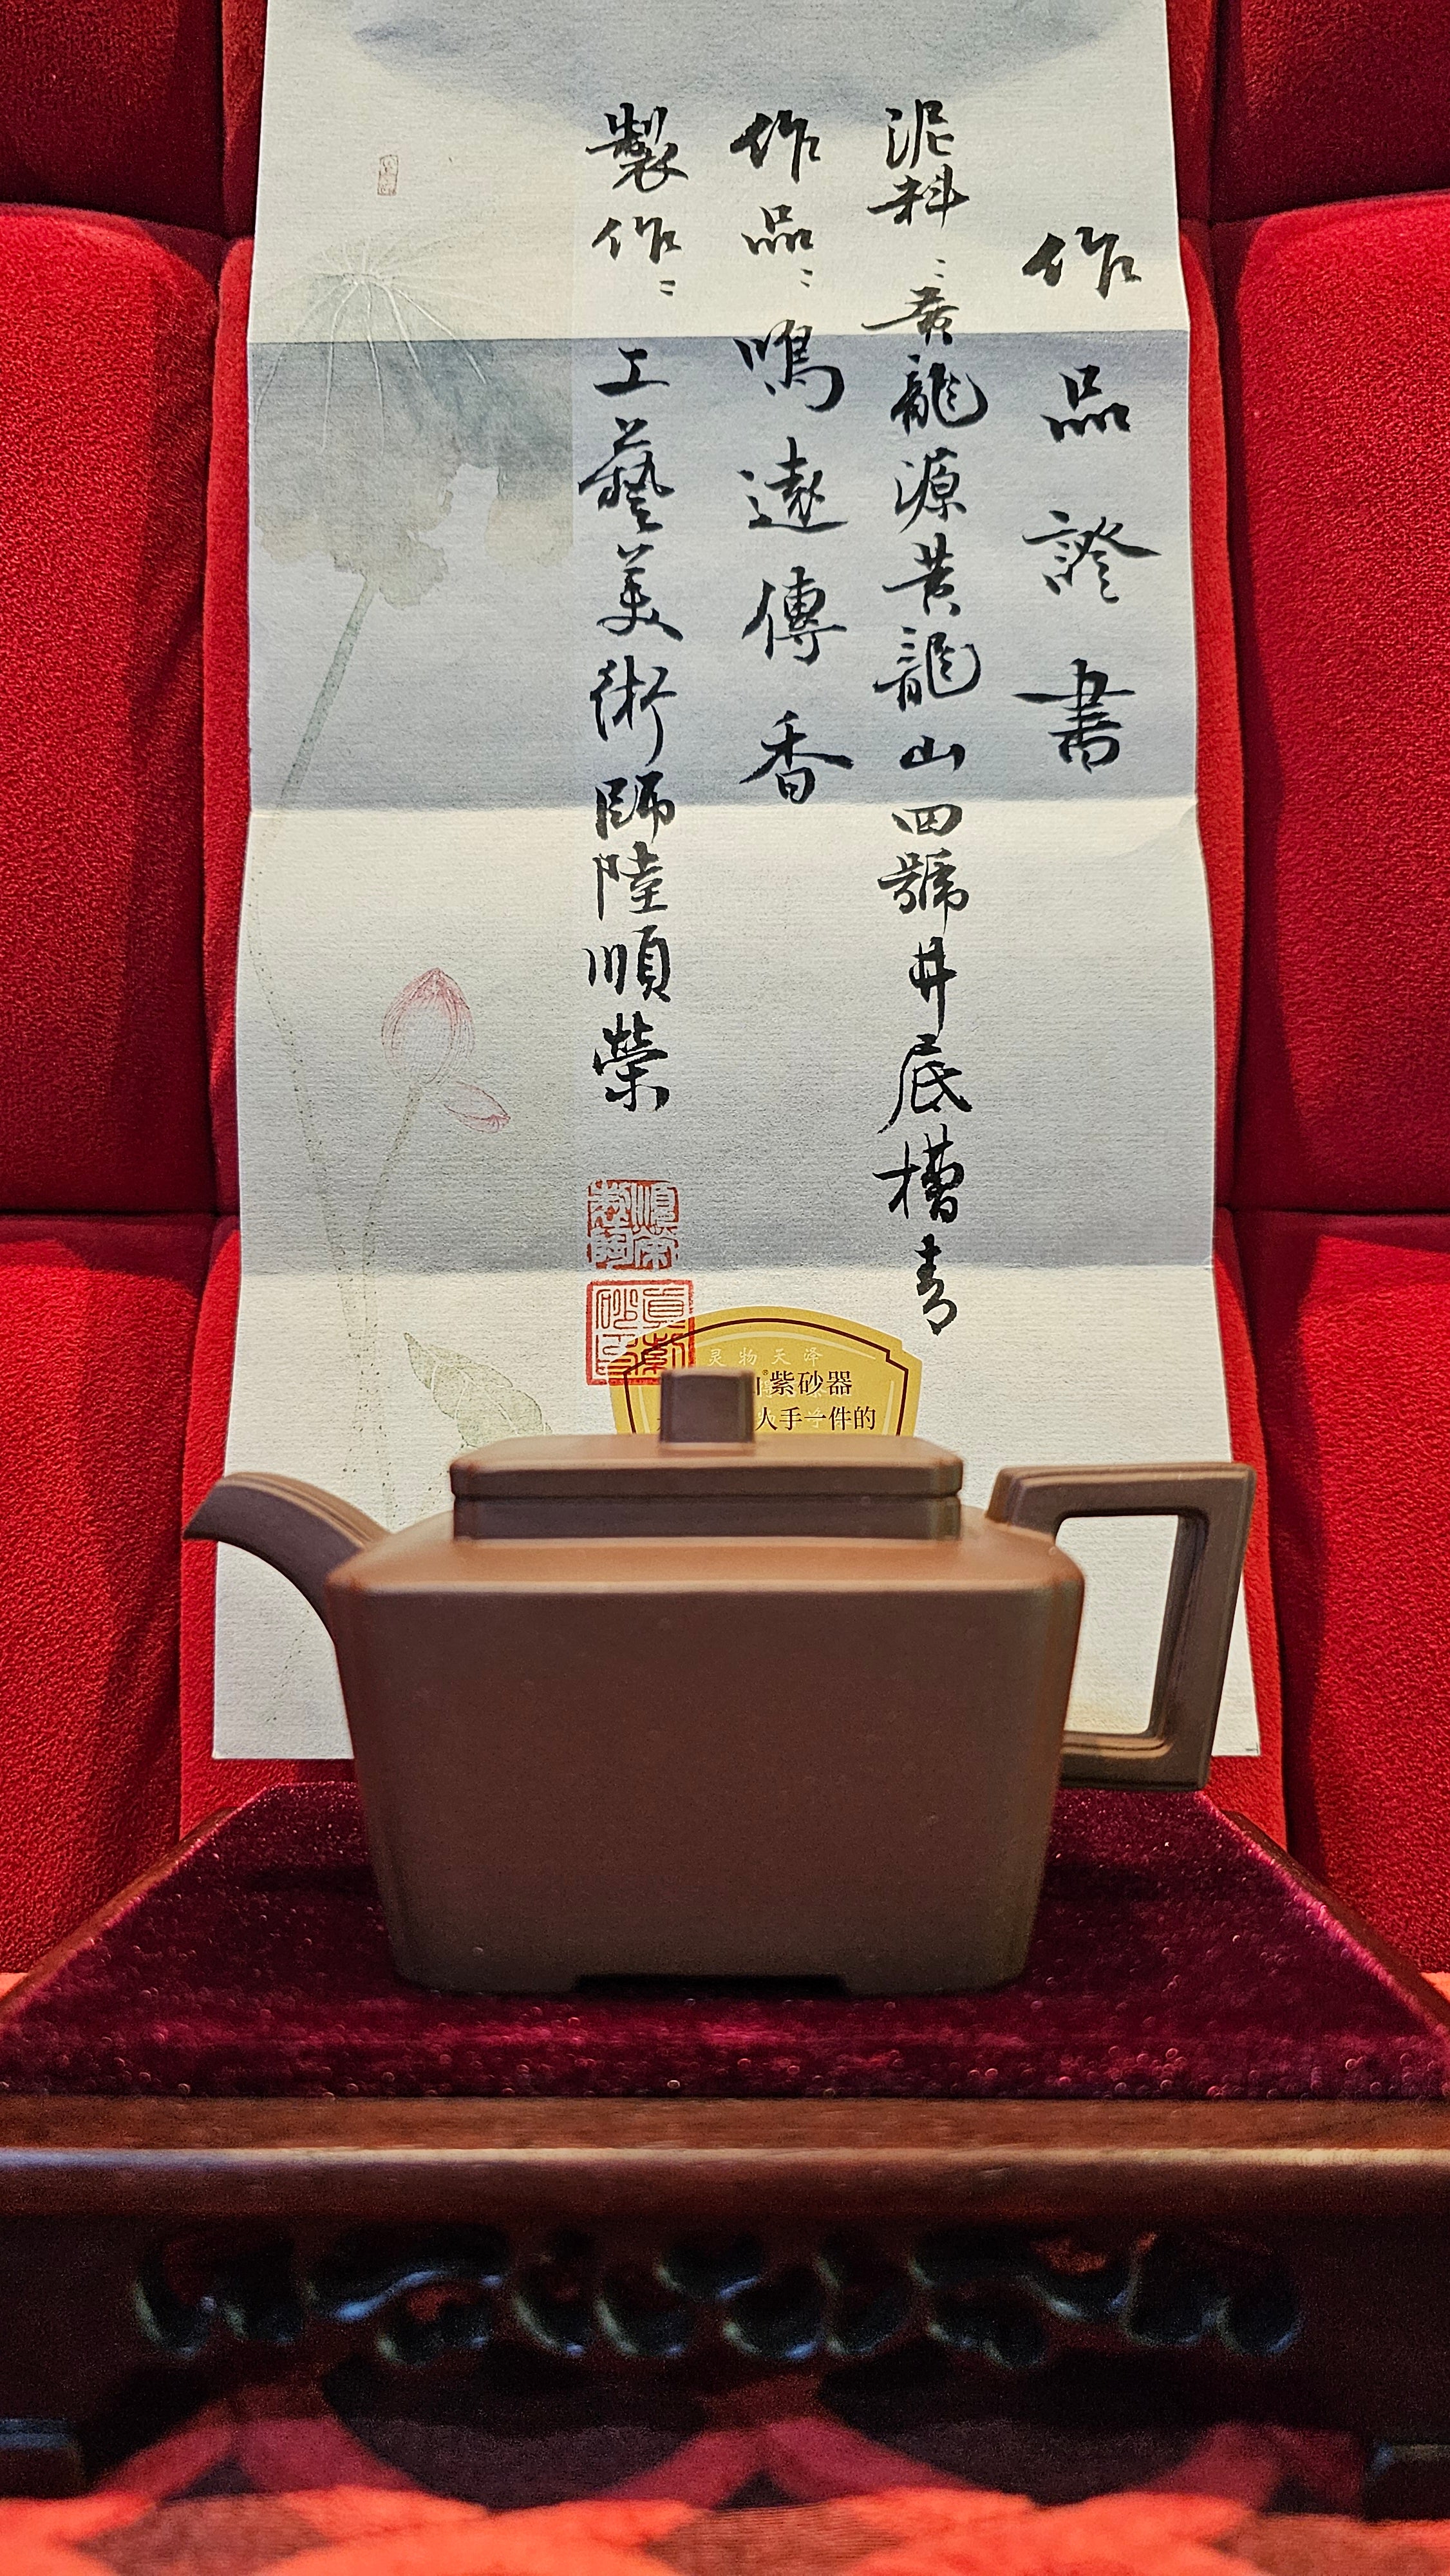 作品證書
泥料：黃龍源黃龍山四號井底槽青
作品：鳴遠傳香
製作：工藝美術師陸順榮
灵物天泽
紫砂器
人手一件的